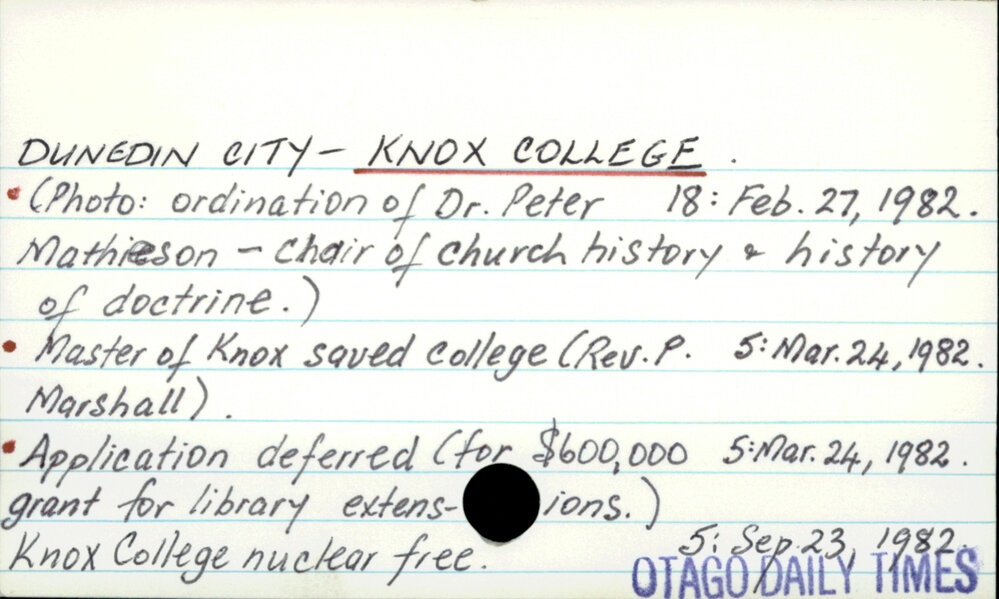 DUNEDIN CITY - KNOX COLLEGE.
• (Photo: ordination of Dr. Peter 18: Feb. 27, 1982.
Mathieson - Chair of church history & history
of doctrine.)
• Master of Knox saved college (Rev. P. 5: Mar. 24, 1982.
Marshall).
• Application deferred (for $600,000 5: Mar. 24, 1982.
grant for library extens- ions.)
Knox College nuclear free. 5: Sep. 23, 1982.
OTAGO DAILY TIMES